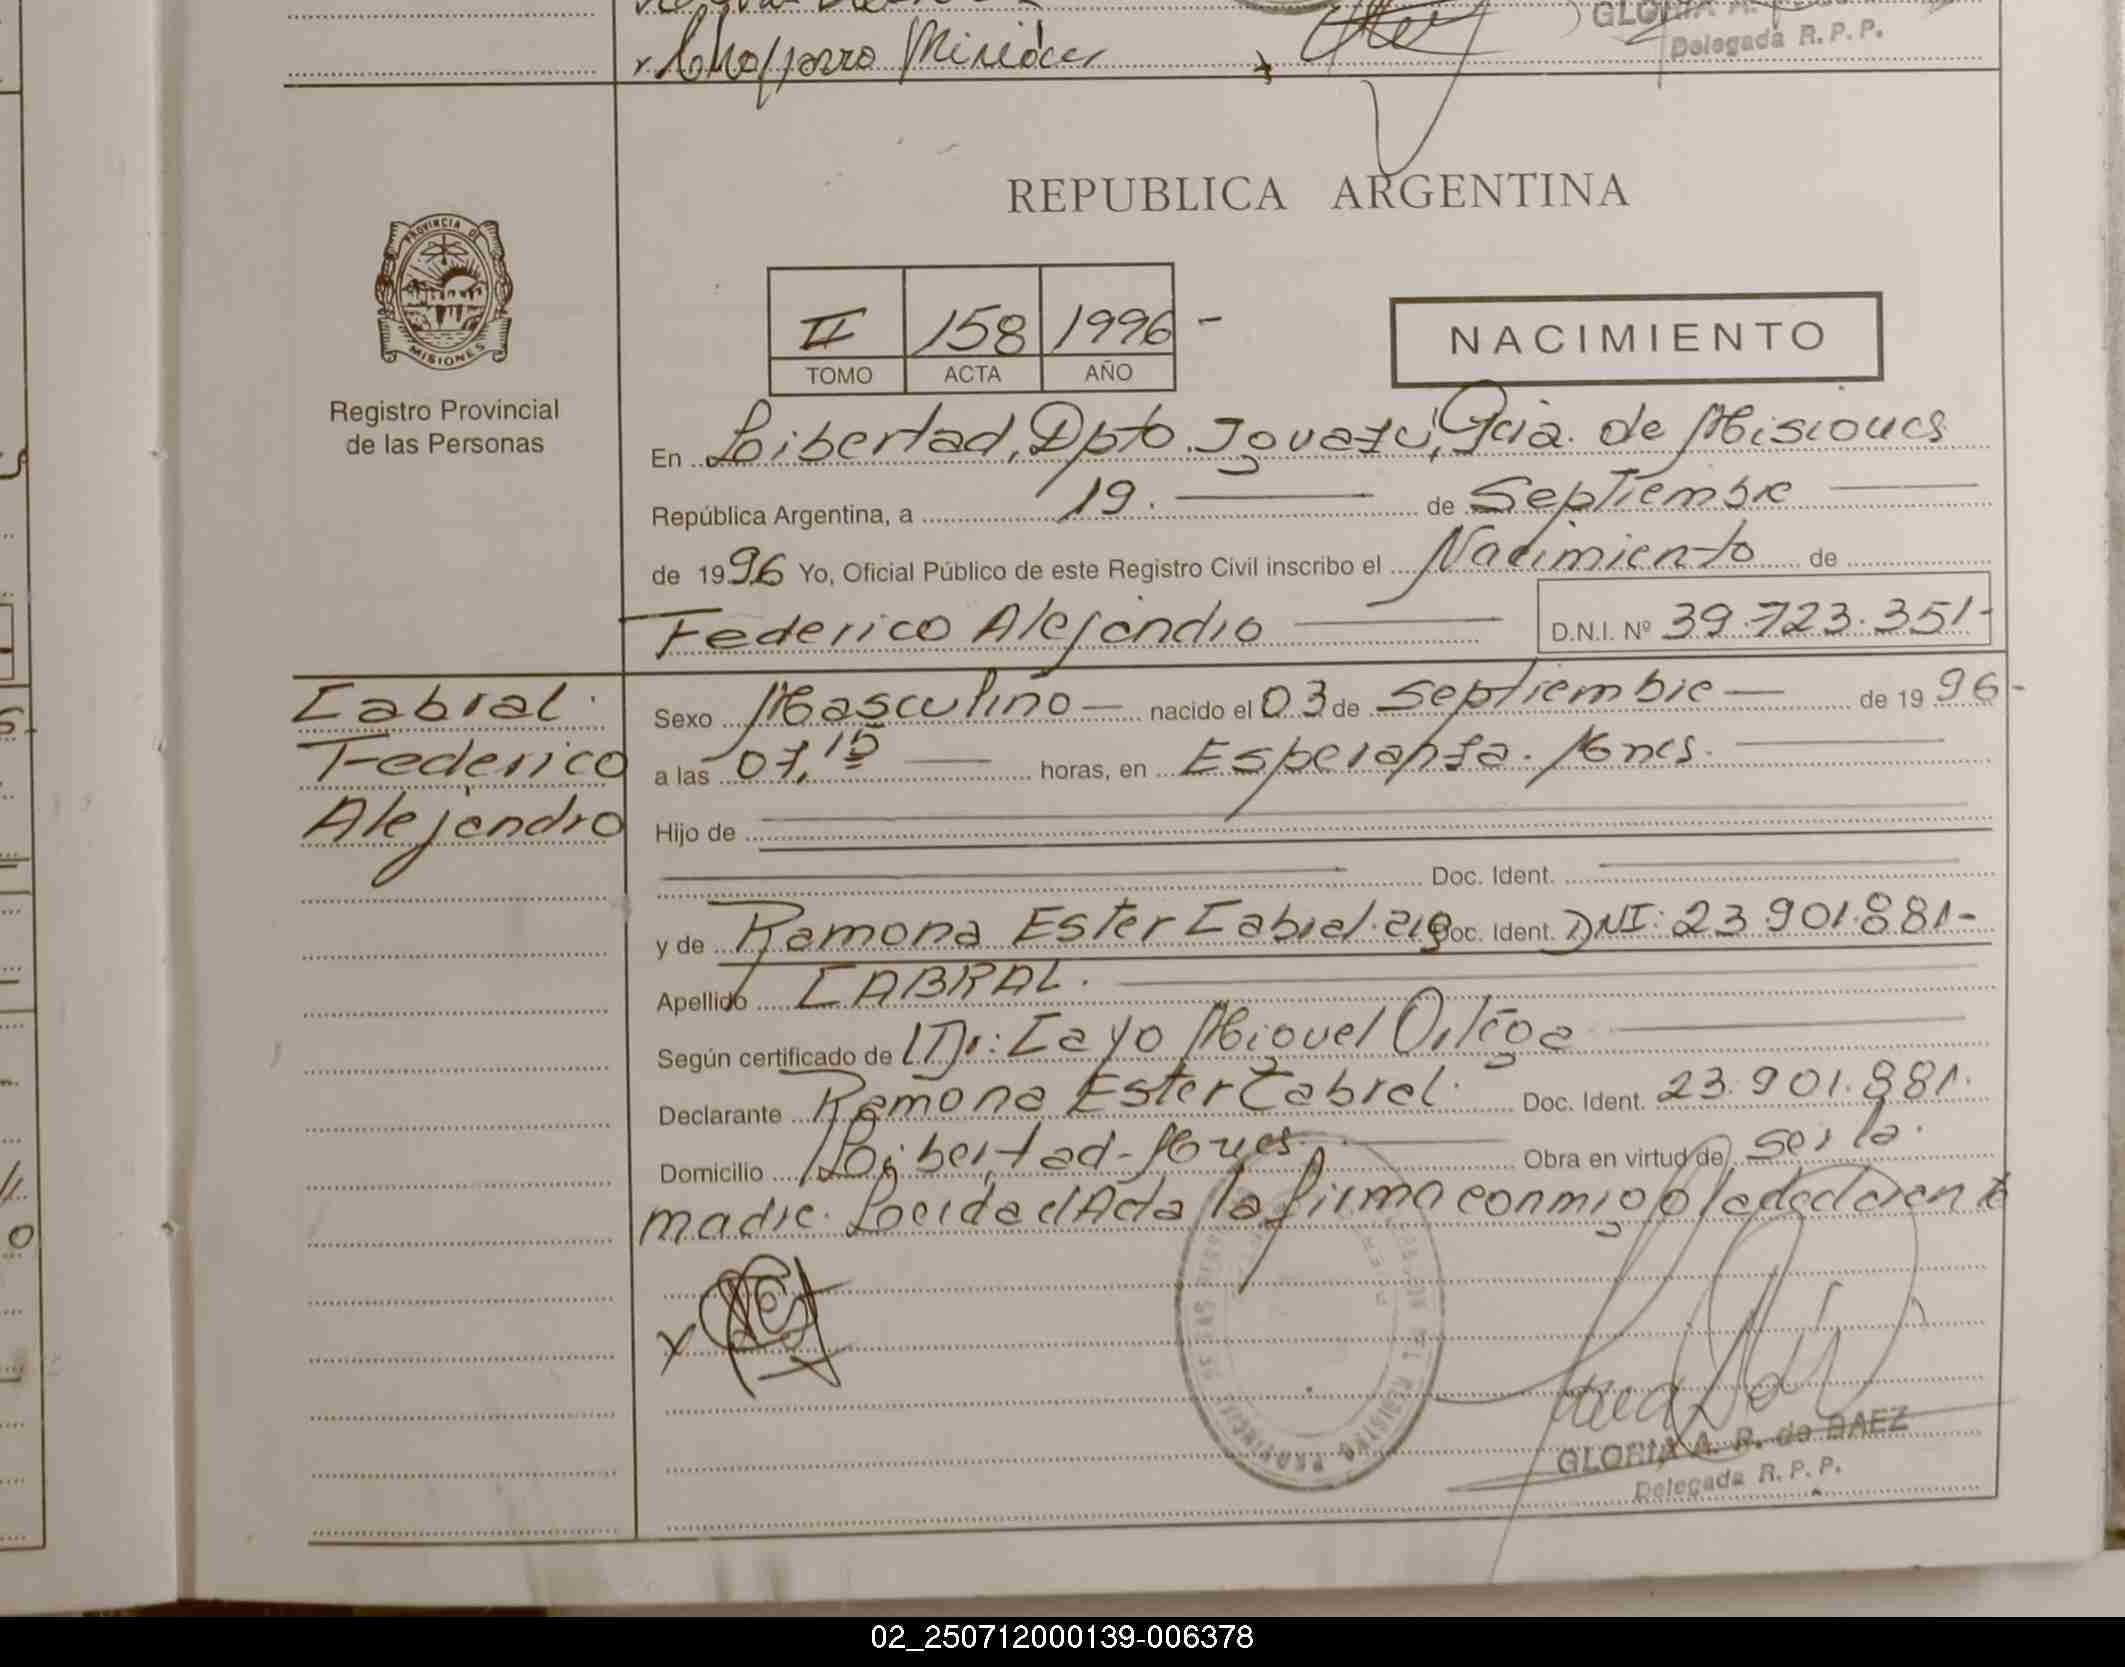 GLORIA A.
Chaparro
Delegada R. P. P.
REPUBLICA ARGENTINA
PROVINCIA DE MISIONES
Registro Provincial
de las Personas
II 158 1996 -
TOMO ACTA AÑO
NACIMIENTO
En Libertad, Dpto. Iguazú, Pcia. de Misiones
República Argentina, a 19. de Septiembre
de 1996 Yo, Oficial Público de este Registro Civil inscribo el Nacimiento de
Federico Alejandro D.N.I. Nº 39.723.351-
Cabral.
Federico
Alejandro
Sexo Masculino nacido el 03 de Septiembre de 1996-
a las 07,15 horas, en Esperanza. Mnes.
Hijo de
Doc. Ident.
y de Ramona Ester Cabral. arg Doc. Ident. DNI: 23.901.881-
Apellido CABRAL.
Según certificado de Dr: Cayo Miguel Ortega
Declarante Ramona Ester Cabral. Doc. Ident. 23.901.881.
Domicilio Libertad - Mnes. Obra en virtud de ser la
madre. Leída el Acta la firma conmigo la declarante
X
REGISTRO PROVINCIAL DE LAS PERSONAS
GLORIA A. R. de BAEZ
Delegada R. P. P.
02_250712000139-006378